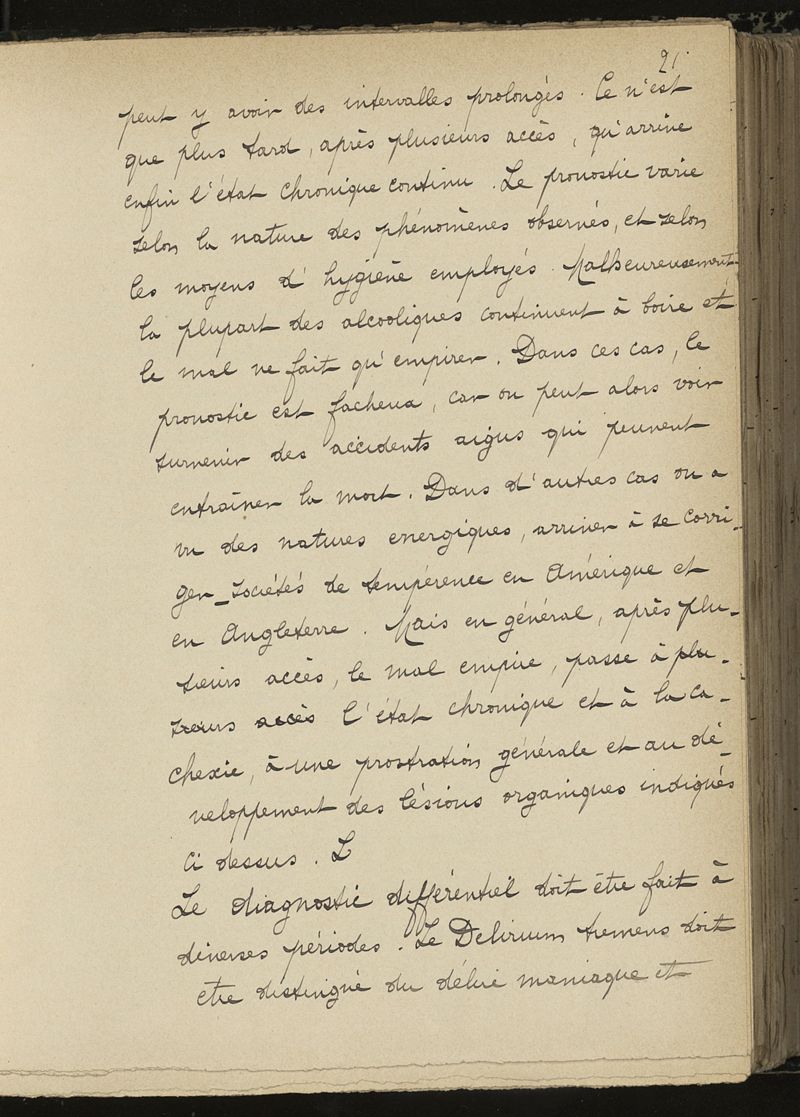 21.
peut y avoir des intervalles prolongés. Ce n'est
que plus tard, après plusieurs accès, qu'arrive
enfin l'état chronique continu. Le pronostic varie
selon la nature des phénomènes observés, et selon
les moyens d'hygiène employés. Malheureusement
la plupart des alcooliques continuent à boire et
le mal ne fait qu'empirer. Dans ces cas, le
pronostic est facheux, car on peut alors voir
survenir des accidents aigus qui peuvent
entraîner la mort. Dans d'autres cas on a
vu des natures energiques, arriver à se corri-
ger _ sociétés de tempérence en Amérique et
en Angleterre. Mais en général, après plu-
sieurs accès, le mal empire, passe à plu-
sieurs accès l'état chronique et à la ca-
chexie, à une prostration générale et au dé-
veloppement des lésions organiques indiqués
ci dessus. L
Le diagnostic différentiel doit être fait à
diverses périodes. Le Delirium tremens doit
etre distingué du délire maniaque et